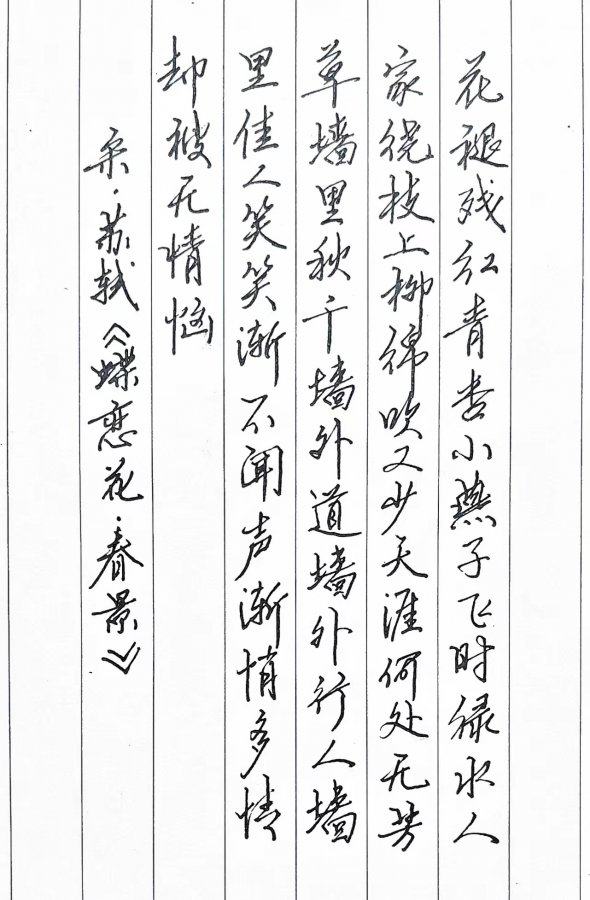 花褪残红青杏小燕子飞时绿水人
家绕枝上柳绵吹又少天涯何处无芳
草墙里秋千墙外道墙外行人墙
里佳人笑笑渐不闻声渐悄多情
却被无情恼
宋·苏轼《蝶恋花·春景》